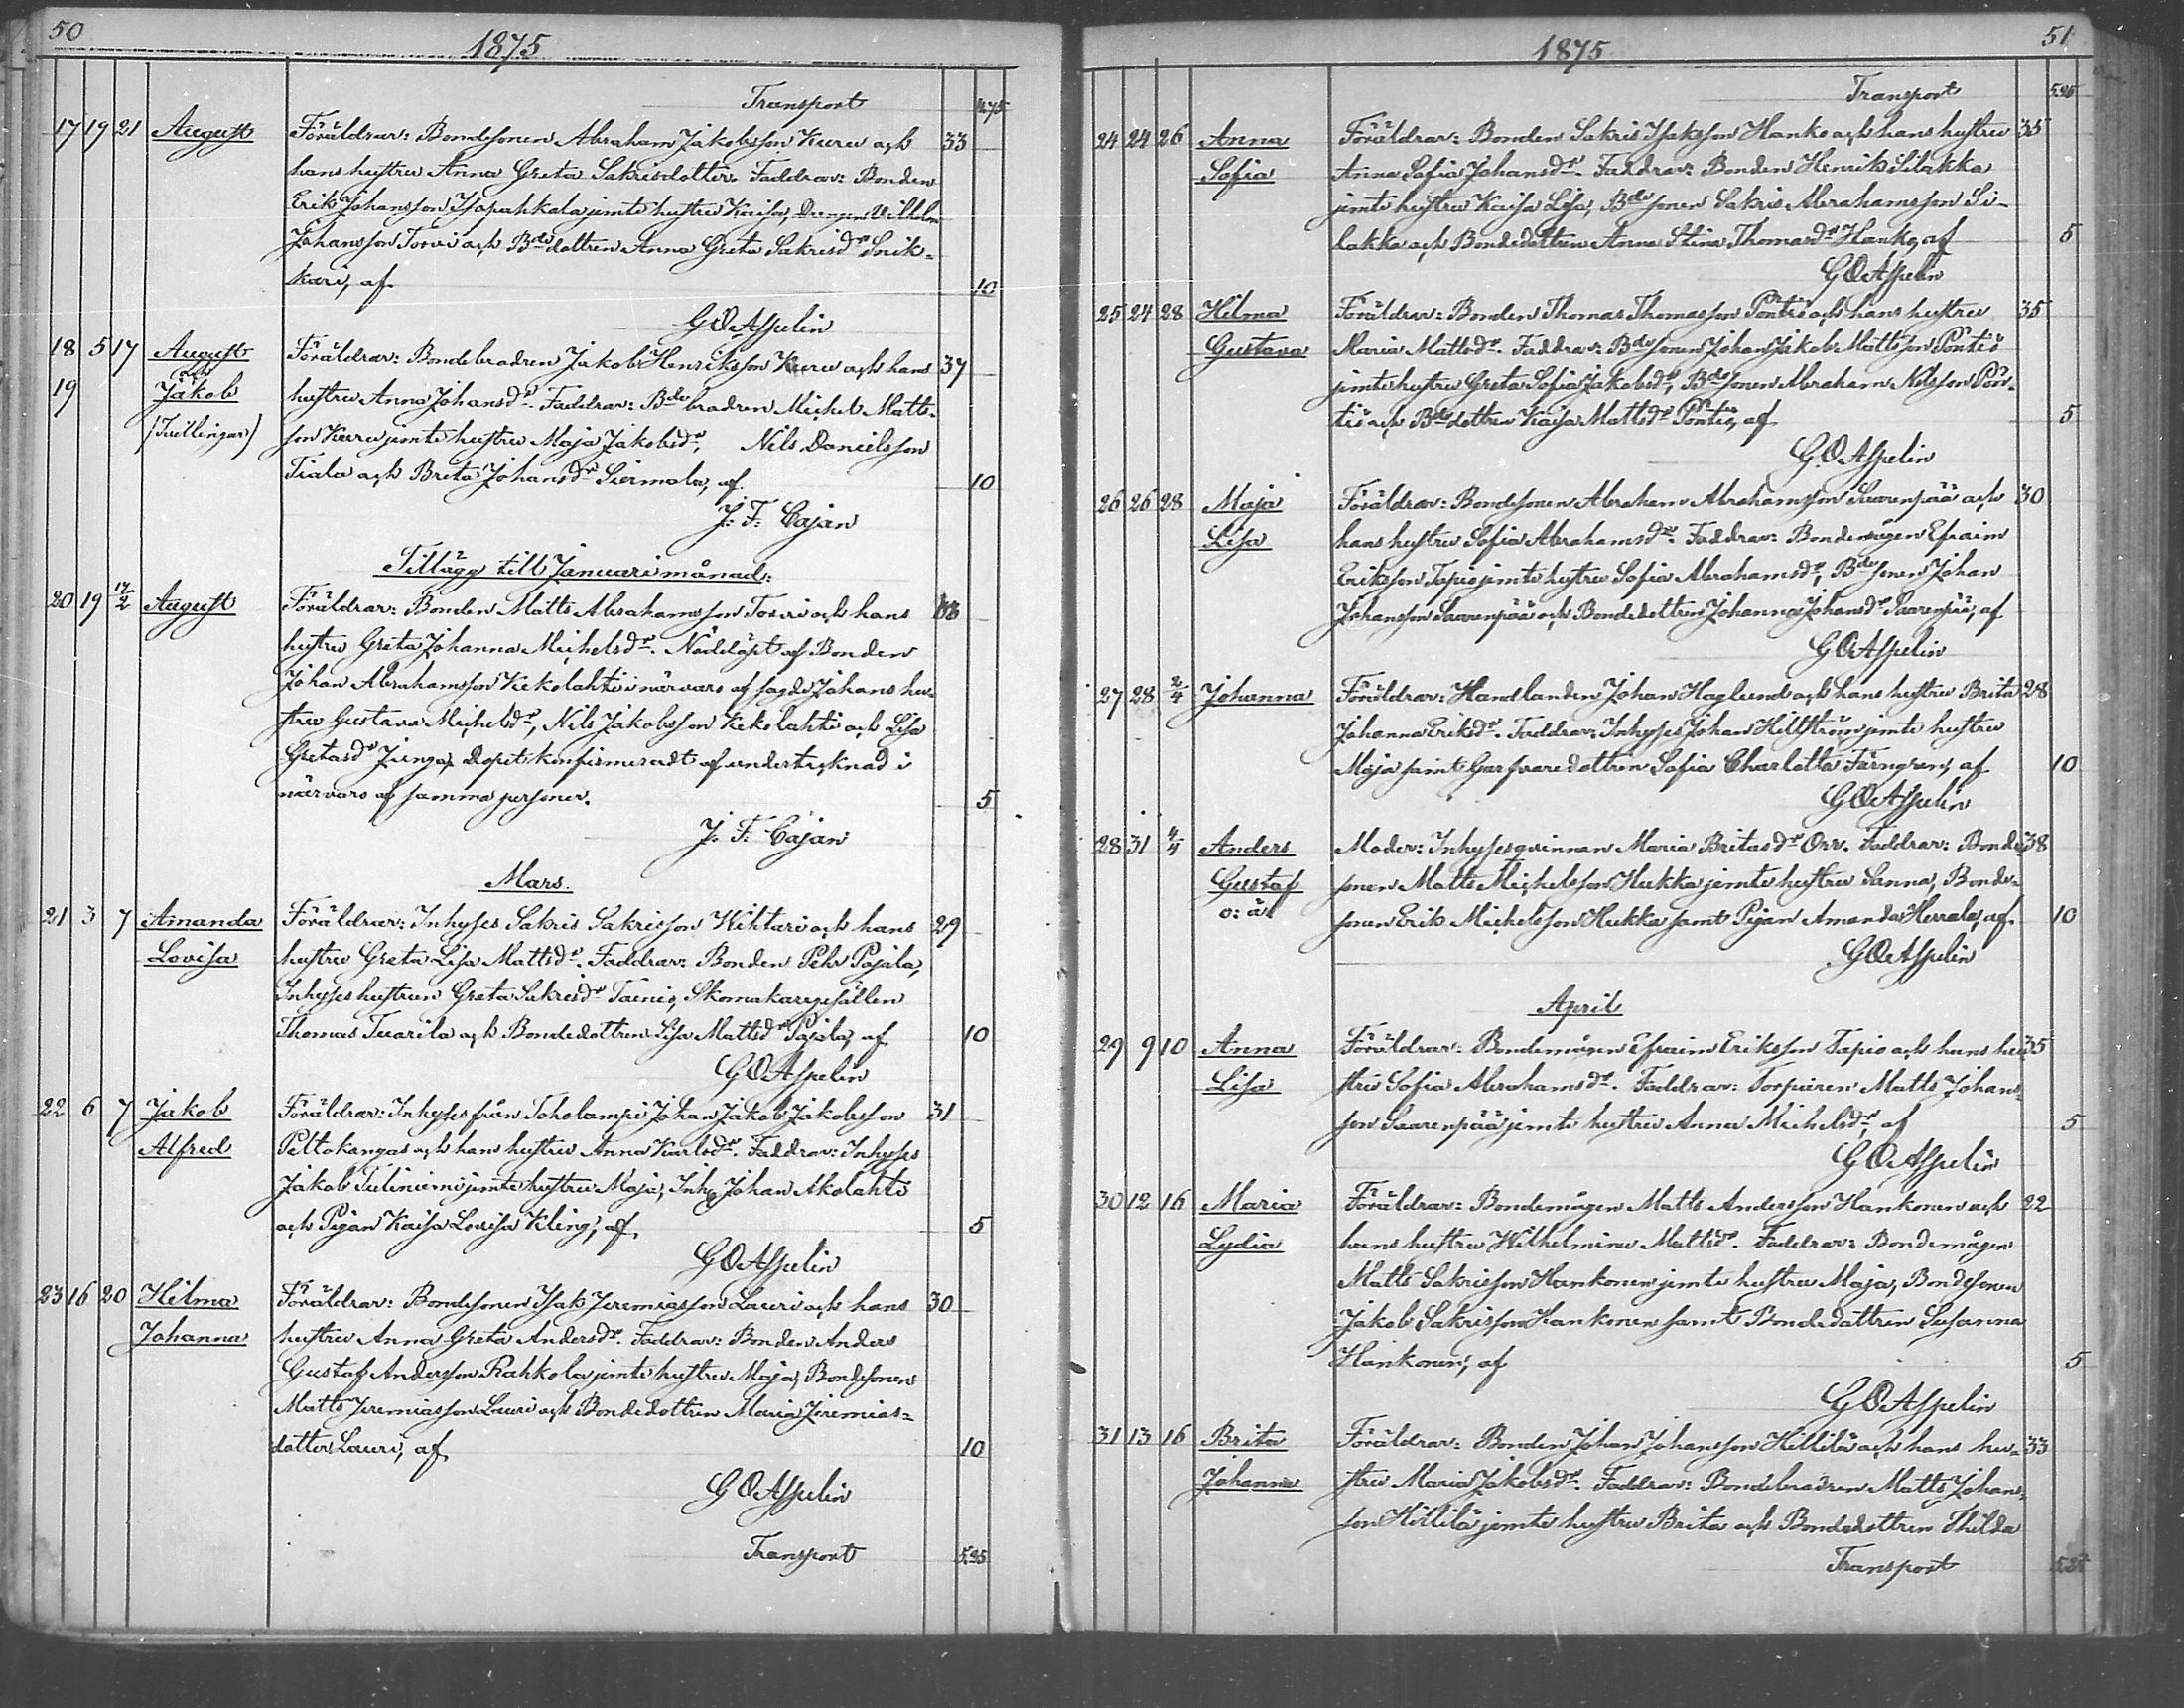 50
1875
Transport 475
17 19 21 August Föräldrar: Bondesonen Abraham Jakobsson Kuru och 33
hans hustru Anna Greta Sakrisdotter. Faddrar: Bonden
Erik Johansson Isopahkala jemte hustru Kaisa, Drengen Wilhelm
Johansson Torvi och Bde dottren Anna Greta Sakrisdr Snik-
kari, af 10
G O Asspelin
18 5 17 August Föräldrar: Bondebrodren Jakob Henriksson Kuru och hans 37
och
19 Jakob hustru Anna Johansdr. Faddrar: Bde brodren Michel Matts-
(Tvillingar) son Kuru jemte hustru Maja Jakobsdr, Nils Danielsson
Tiala och Brita Johansdr Siermala, af 10
J. F. Cajan
Tillägg till Januari månad:
20 19 17/2 August Föräldrar: Bonden Matts Abrahamsson Torvi och hans 33
hustru Greta Johanna Michelsdr. Nöddöpt af Bonden
Johan Abrahamsson Kekolahti i närvaro af sagde Johans hu-
stru Gustava Michelsdr, Nils Jakobsson Kekolahti och Lisa
Gretasdr Junga, Dopet konfirmeradt af undertecknad i
närvaro af samma personer. 5
J. F. Cajan
Mars.
21 3 7 Amanda Föräldrar: Inhyses Sakris Sakrisson Wihtari och hans 29
Lovisa hustru Greta Lisa Mattsdr. Faddrar: Bonden Pehr Pajala,
Inhyses hustrun Greta Sakrisdr Tainio, Skomakaregesällen
Thomas Tuorila och Bondedottren Lisa Mattsdr Pajala, af 10
G O Asspelin
22 6 7 Jakob Föräldrar: Inhyses från Toholampi Johan Jakob Jakobsson 31
Alfred Peltokangas och hans hustru Anna Karlsdr. Faddrar: Inhyses
Jakob Tuliniemi jemte hustru Maja, Inh Johan Akolahti
och Pigan Kaisa Lovisa Kling, af 5
G O Asspelin
23 16 20 Hilma Föräldrar: Bondesonen Isak Jeremiasson Lauri och hans 30
Johanna hustru Anna Greta Andersdr. Faddrar: Bonden Anders
Gustaf Andersson Rahkola jemte hustru Maja, Bondesonen
Matts Jeremiasson Lauri och Bondedottren Maria Jeremias-
dotter Lauri, af 10
G O Asspelin
Transport 525
51
1875
Transport 525
24 24 26 Anna Föräldrar: Bonden Sakris Isaksson Hanko och hans hustru 35
Sofia Anna Sofia Johansdr. Faddrar: Bonden Henrik Silakka
jemte hustru Kaisa Lisa, Bde sonen Sakris Abrahamsson Si-
lakka och Bondedottren Anna Stina Thomasdr Hanko, af 5
G O Asspelin
25 24 28 Hilma Föräldrar: Bonden Thomas Thomasson Pöntiö och hans hustru 35
Gustava Maria Mattsdr. Faddrar: Bde sonen Johan Jakob Mattsson Pöntiö
jemte hustru Greta Sofia Jakobsdr, Bde sonen Abraham Nilsson Pön-
tiö och Bde dottren Kaisa Mattsdr Pöntiö, af 5
G. O Asspelin
26 26 28 Maja Föräldrar: Bondesonen Abraham Abrahamsson Saarenpää och 30
Lisa hans hustru Sofia Abrahamsdr. Faddrar: Bondemågen Efraim
Eriksson Tapio jemte hustru Sofia Abrahamsdr, Bde sonen Johan
Johansson Saarenpää och Bondedottren Johanna Johansdr Saarenpää, af
G O Asspelin
27 28 2/4 Johanna Föräldrar: Handlanden Johan Haglund och hans hustru Brita 28
Johanna Eriksdr. Faddrar: Inhyses Johan Hillström jemte hustru
Maja samt Garfvaredottren Sofia Charlotta Färngren, af 10
G O Asspelin
28 31 4/4 Anders Moder: Inhysesqvinnan Maria Britasdr Orr. Faddrar: Bonde- 38
Gustaf sonen Matts Michelsson Hukka jemte hustru Sanna, Bonde-
o: ä sonen Erik Michelsson Hukka samt Pigan Amanda Herrala, af 10
G O Asspelin
April
29 9 10 Anna Föräldrar: Bondemågen Efraim Eriksson Tapio och hans hu- 35
Lisa stru Sofia Abrahamsdr. Faddrar: Torparen Matts Johans-
son Saarenpää jemte hustru Anna Michelsdr, af 5
G O Asspelin
30 12 16 Maria Föräldrar: Bondemågen Matts Andersson Hankonen och 22
Lydia hans hustru Wilhelmina Mattsdr. Faddrar: Bondemågen
Matts Sakrisson Hankonen jemte hustru Maja, Bondesonen
Jakob Sakrisson Hankonen samt Bondedottren Susanna
Hankonen, af 5
G O Asspelin
31 13 16 Brita Föräldrar: Bonden Johan Johansson Hillilä och hans hu- 33
Johanna stru Maria Jakobsdr. Faddrar: Bondebrodren Matts Johans-
son Hillilä jemte hustru Brita och Bondedottren Thilda
Transport